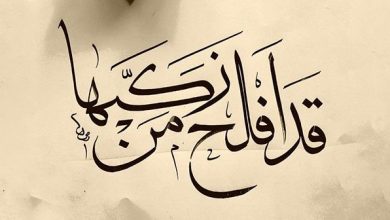 قد أفلح من زكّىها